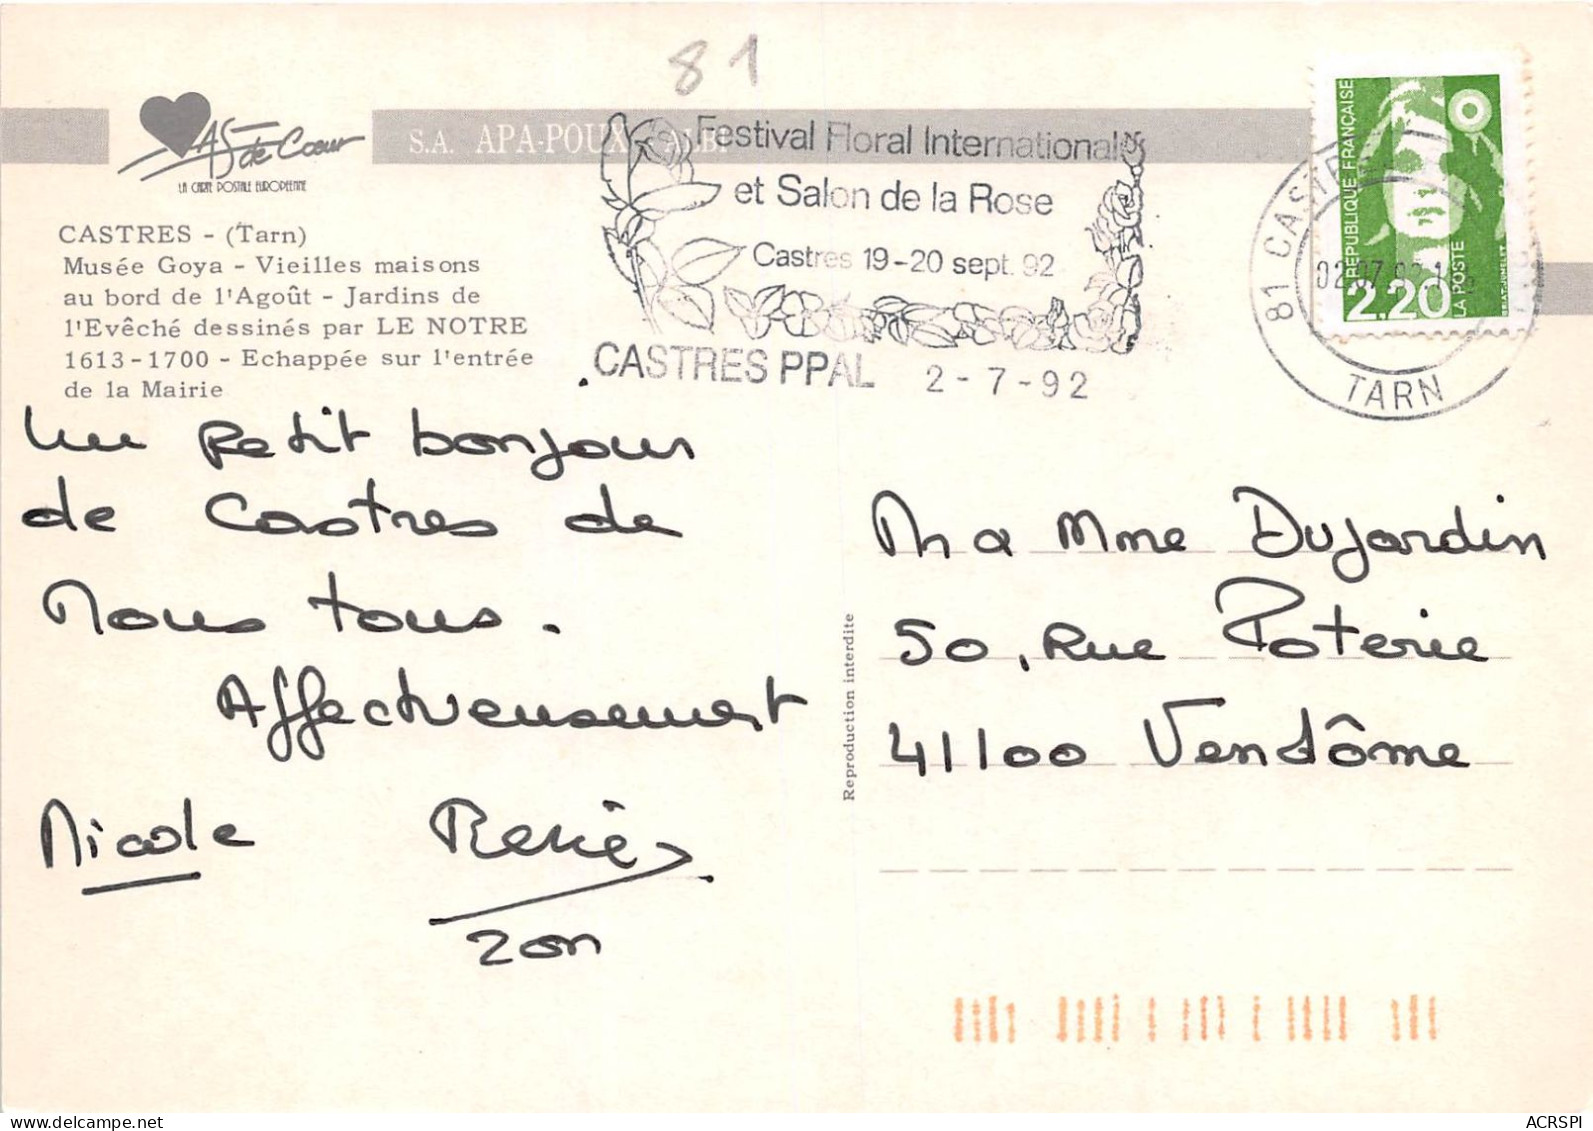 81
As de Cœur
LA CARTE POSTALE EUROPEENNE
S.A. APA-POUX - ALBI
Festival Floral International
et Salon de la Rose
Castres 19-20 sept. 92
CASTRES PPAL 2-7-92
RÉPUBLIQUE FRANÇAISE
2,20
LA POSTE
81 CASTRES
TARN
CASTRES - (Tarn)
Musée Goya - Vieilles maisons
au bord de l'Agoût - Jardins de
l'Evêché dessinés par LE NOTRE
1613-1700 - Echappée sur l'entrée
de la Mairie
Un petit bonjour
de Castres de
Nous tous.
Affectueusement
Nicole
zon
Reproduction interdite
M a Mme Dujardin
50, Rue Poterie
41100 Vendôme
delcampe.net
ACRSPI